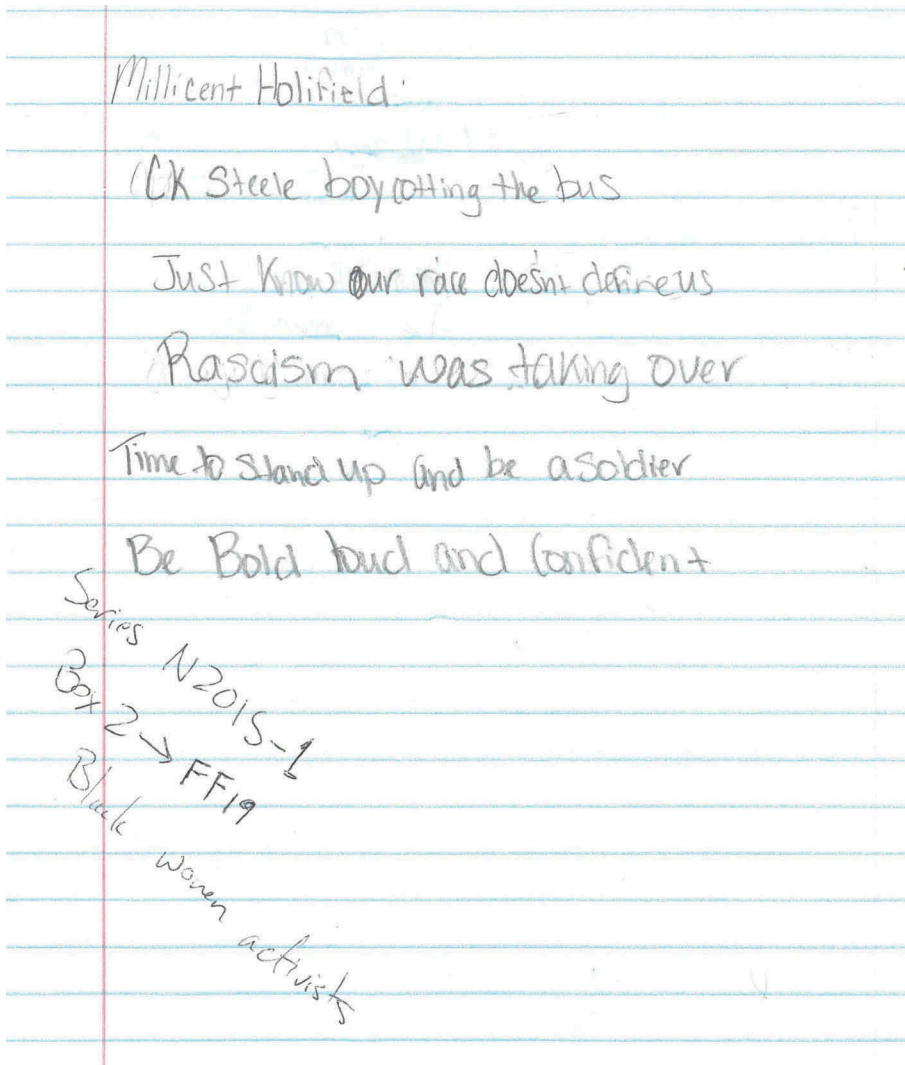 Millicent Holifield:
CK Steele boycotting the bus
Just Know our race doesn't define us
Rascism was taking over
Time to stand up and be a soldier
Be Bold loud and Confident
Series N2015-1
Box 2 → FF19
Black women activists